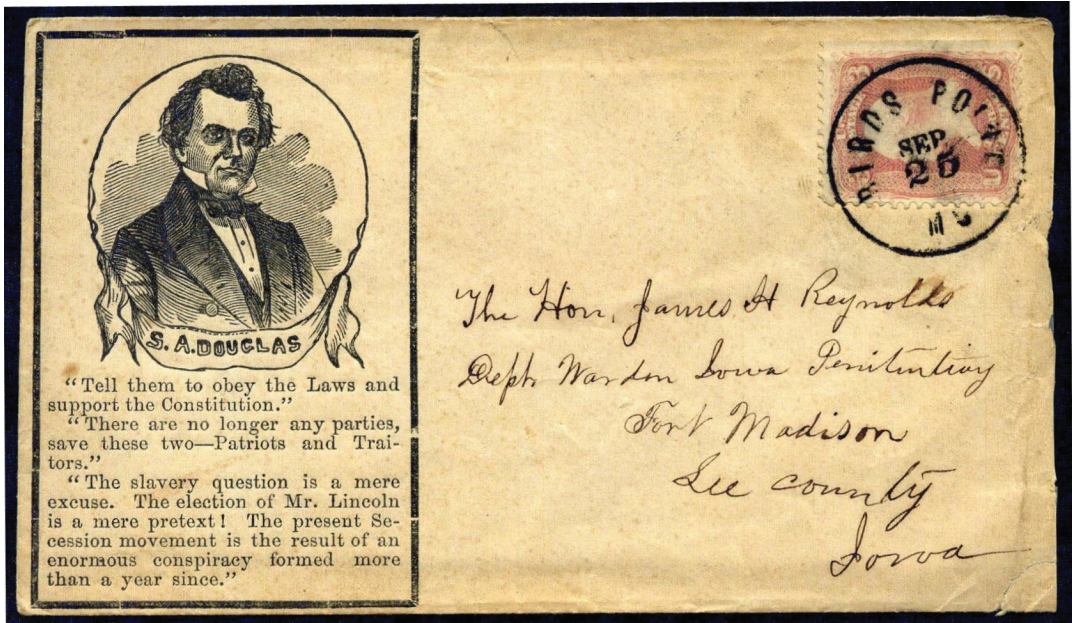 S. A. DOUGLAS
“Tell them to obey the Laws and
support the Constitution.”
“There are no longer any parties,
save these two—Patriots and Trai-
tors.”
“The slavery question is a mere
excuse. The election of Mr. Lincoln
is a mere pretext! The present Se-
cession movement is the result of an
enormous conspiracy formed more
than a year since.”
BIRDS POINT
SEP
25
MO
The Hon. James H Reynolds
Dept. Warden Iowa Penitentiay
Fort Madison
Lee County
Iowa